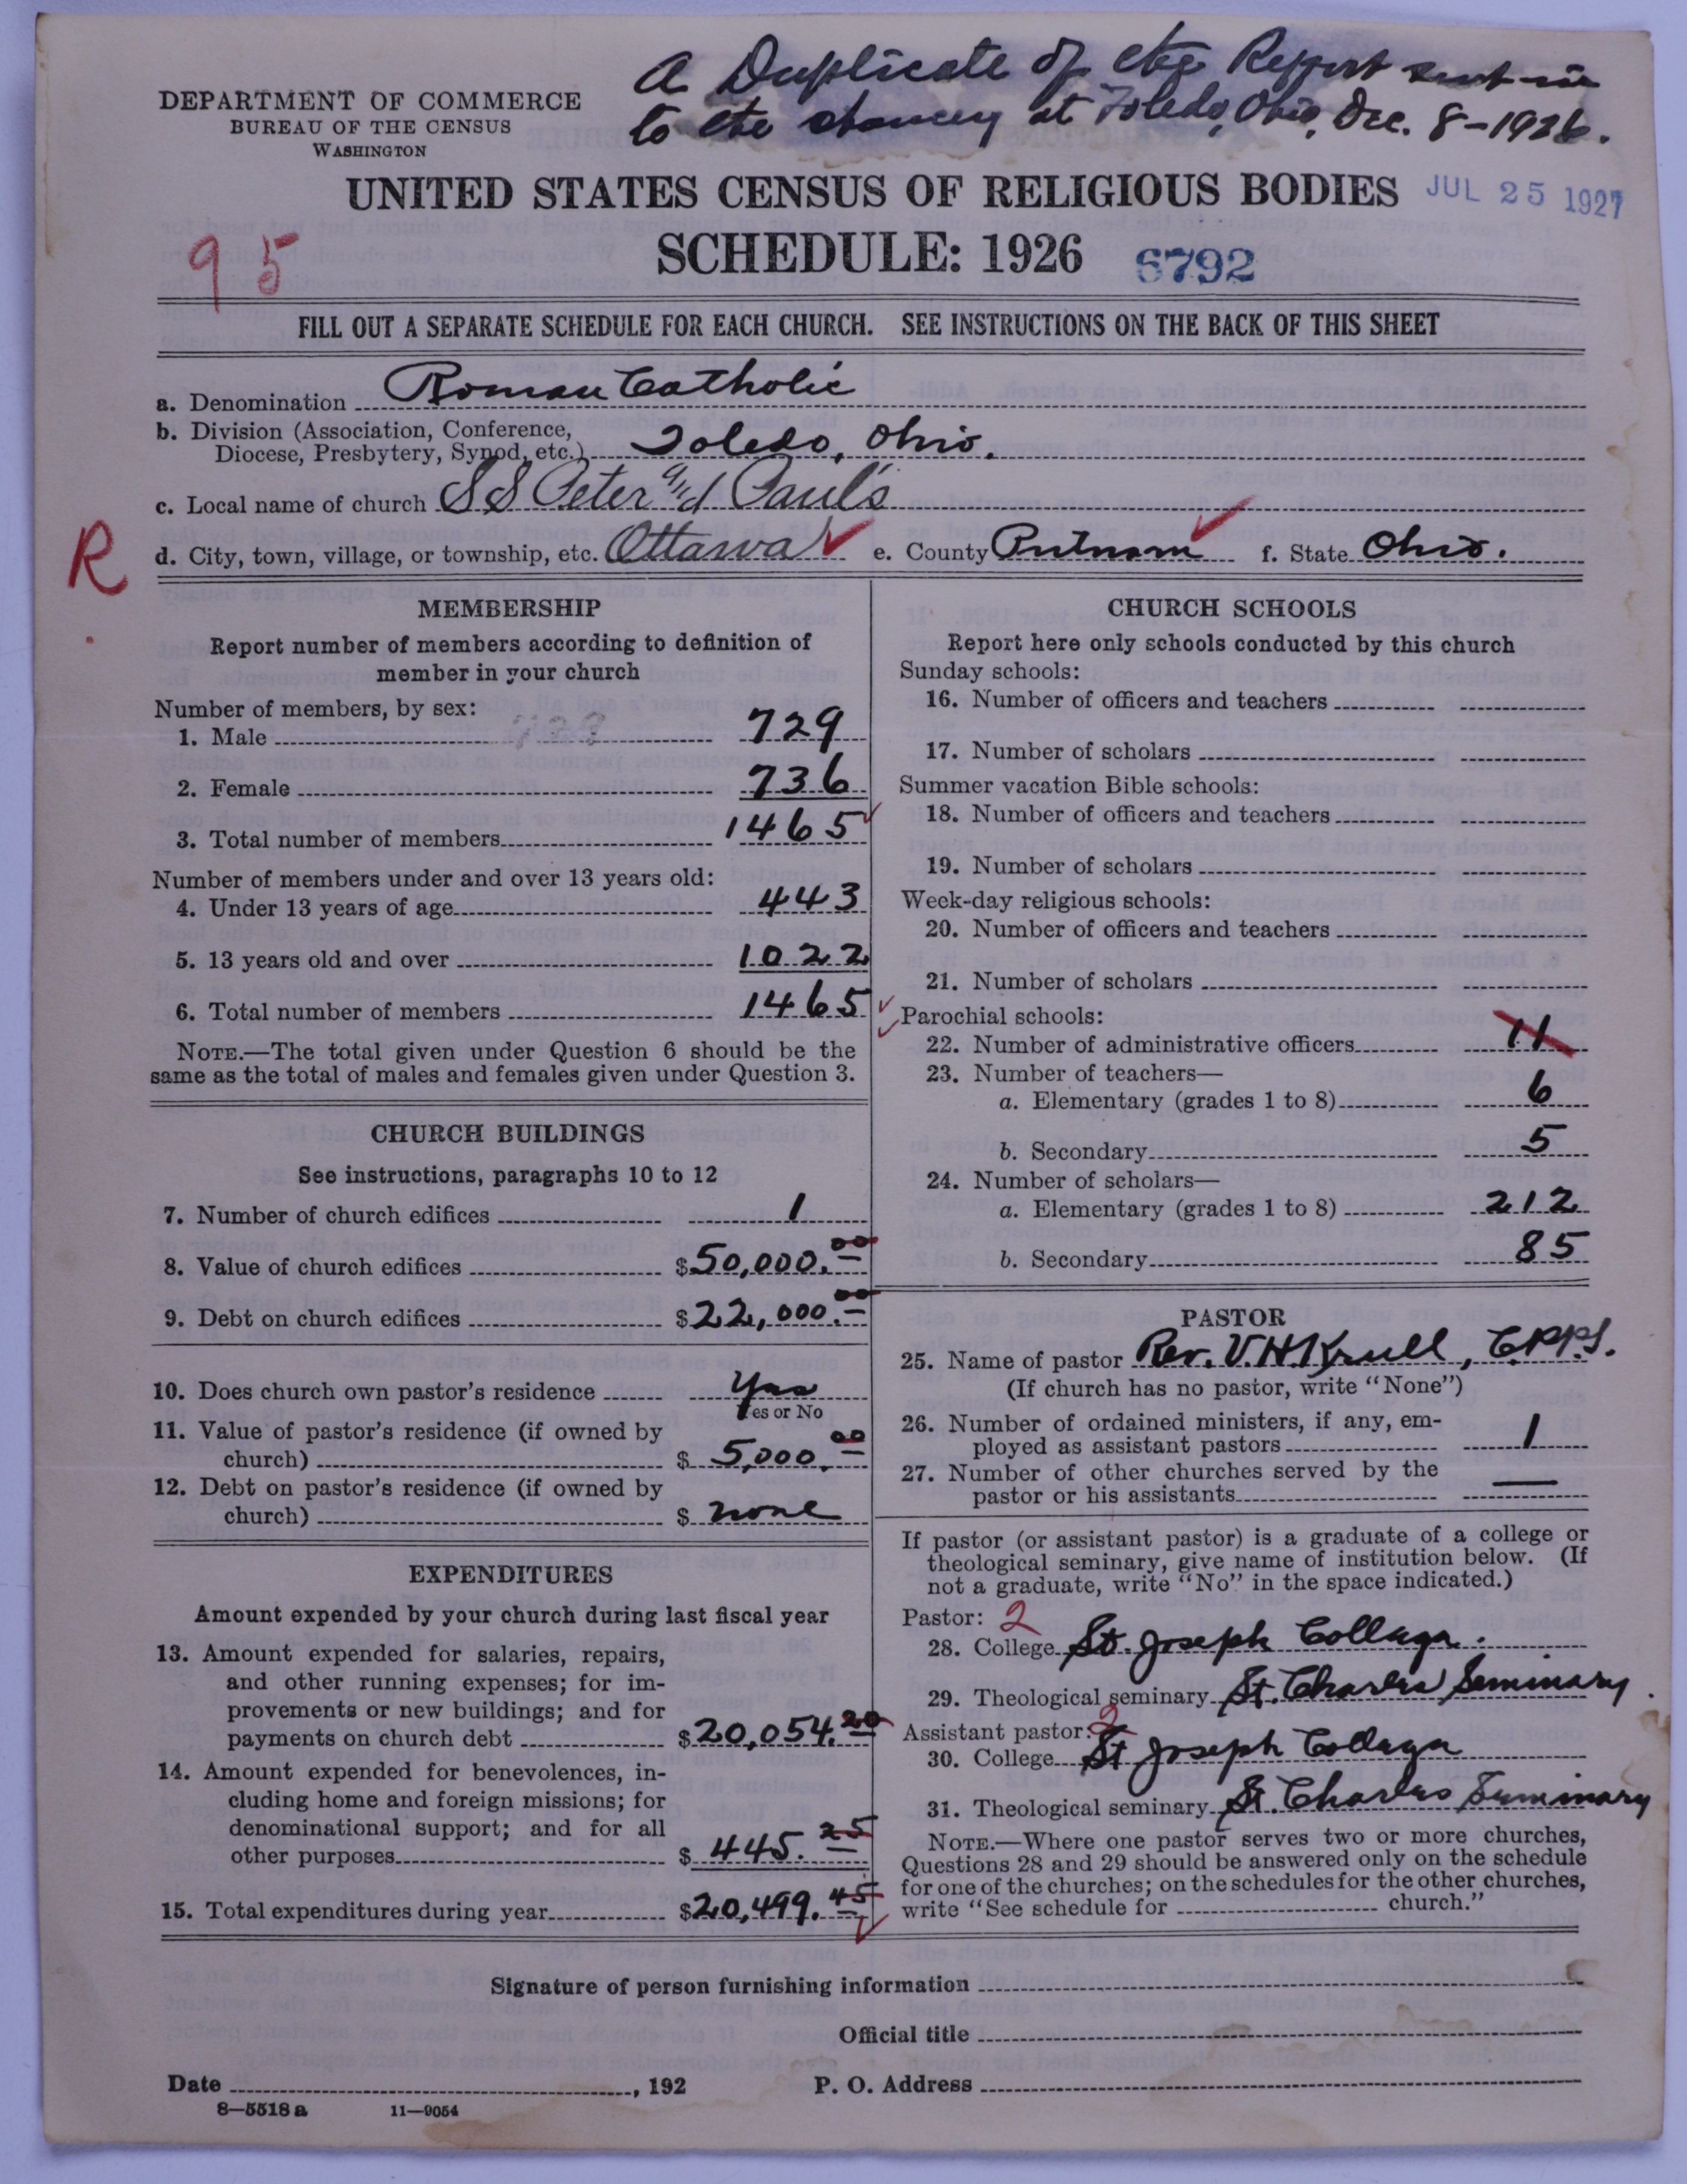 A Duplicate of the Report sent in
to the chancery at Toledo, Ohio, Dec. 8-1926.
DEPARTMENT OF COMMERCE
BUREAU OF THE CENSUS
WASHINGTON
UNITED STATES CENSUS OF RELIGIOUS BODIES
JUL 25 1927
SCHEDULE: 1926
6792
95
FILL OUT A SEPARATE SCHEDULE FOR EACH CHURCH. SEE INSTRUCTIONS ON THE BACK OF THIS SHEET
a. Denomination Roman Catholic
b. Division (Association, Conference,
Diocese, Presbytery, Synod, etc.) Toledo, Ohio.
c. Local name of church SS Peter and Paul's
R
d. City, town, village, or township, etc. Ottawa e. County Putnam f. State Ohio.
MEMBERSHIP
Report number of members according to definition of
member in your church
Number of members, by sex:
1. Male 729
2. Female 736
3. Total number of members 1465
Number of members under and over 13 years old:
4. Under 13 years of age 443
5. 13 years old and over 1022
6. Total number of members 1465
NOTE.—The total given under Question 6 should be the
same as the total of males and females given under Question 3.
CHURCH BUILDINGS
See instructions, paragraphs 10 to 12
7. Number of church edifices 1
8. Value of church edifices $50,000.00
9. Debt on church edifices $22,000.00
10. Does church own pastor's residence Yes
Yes or No
11. Value of pastor's residence (if owned by
church) $ 5,000.00
12. Debt on pastor's residence (if owned by
church) $ none
EXPENDITURES
Amount expended by your church during last fiscal year
13. Amount expended for salaries, repairs,
and other running expenses; for im-
provements or new buildings; and for
payments on church debt $20,054.20
14. Amount expended for benevolences, in-
cluding home and foreign missions; for
denominational support; and for all
other purposes $ 445.25
15. Total expenditures during year $20,499.45
CHURCH SCHOOLS
Report here only schools conducted by this church
Sunday schools:
16. Number of officers and teachers
17. Number of scholars
Summer vacation Bible schools:
18. Number of officers and teachers
19. Number of scholars
Week-day religious schools:
20. Number of officers and teachers
21. Number of scholars
Parochial schools:
22. Number of administrative officers 11
23. Number of teachers—
a. Elementary (grades 1 to 8) 6
b. Secondary 5
24. Number of scholars—
a. Elementary (grades 1 to 8) 212
b. Secondary 85
PASTOR
25. Name of pastor Rev. V.H. Krull, C.PP.S.
(If church has no pastor, write "None")
26. Number of ordained ministers, if any, em-
ployed as assistant pastors 1
27. Number of other churches served by the
pastor or his assistants —
If pastor (or assistant pastor) is a graduate of a college or
theological seminary, give name of institution below. (If
not a graduate, write "No" in the space indicated.)
Pastor: 2
28. College St. Joseph College.
29. Theological seminary St. Charles Seminary.
Assistant pastor: 2
30. College St Joseph College
31. Theological seminary St. Charles Seminary
NOTE.—Where one pastor serves two or more churches,
Questions 28 and 29 should be answered only on the schedule
for one of the churches; on the schedules for the other churches,
write "See schedule for church."
Signature of person furnishing information
Official title
Date , 192 P. O. Address
8—5518 a 11—9054